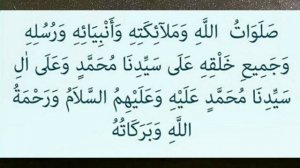 صَلَوَاتُ اللَّهِ وَمَلَآئِكَتِهِ وَأَنْبِيَائِهِ وَرُسُلِهِ
وَجَمِيعِ خَلْقِهِ عَلَى سَيِّدِنَا مُحَمَّدٍ وَعَلَى اٰلِ
سَيِّدِنَا مُحَمَّدٍ عَلَيْهِ وَعَلَيْهِمُ السَّلاَمُ وَرَحْمَةُ
اللَّهِ وَبَرَكَاتُهُ